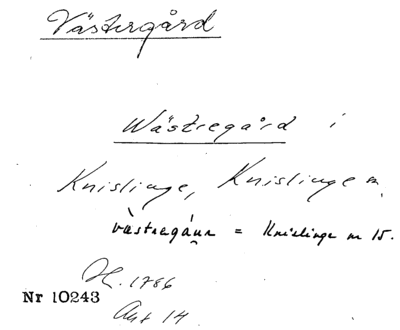 Västergård
Wästregård i
Knislinge, Knislinge m.
= Knislinge m 15.
H. 1786
Nr 10243
Akt 14